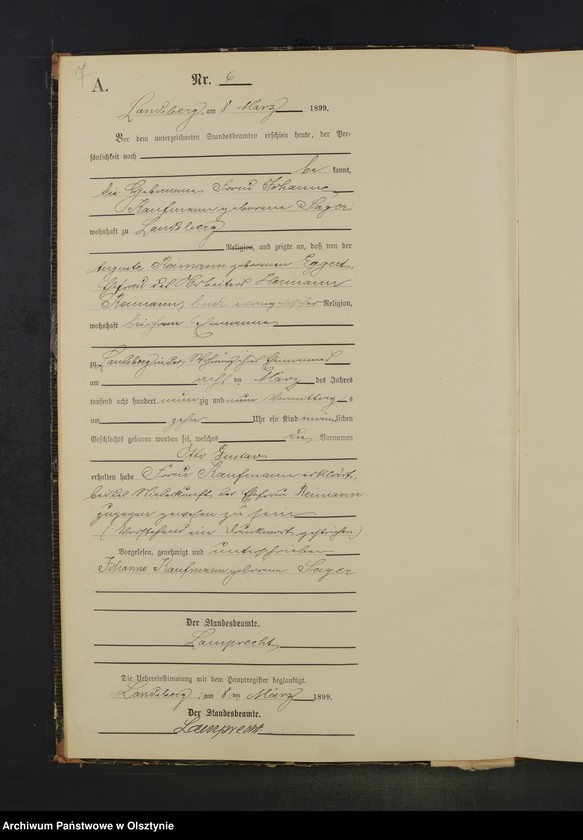 7
A.
Nr. 6
Landsberg, am 8 März 1899.
Vor dem unterzeichneten Standesbeamten erschien heute, der Per-
sönlichkeit nach
be kannt,
die Hebamme Frau Johanne
Kaufmann geborene Sager
wohnhaft zu Landsberg
Religion, und zeigte an, daß von der
Auguste Reimann geborenen Eggert,
Ehefrau des Arbeiters Hermann
Reimann, beide evangelischer Religion,
wohnhaft bei ihrem Ehemanne
zu Landsberg in der Wohnung ihres Ehemannes
am acht ten März des Jahres
tausend acht hundert neunzig und neun Vormittags
um zehn Uhr ein Kind männlichen
Geschlechts geboren worden sei, welches die Vornamen
Otto Gustav
erhalten habe. Frau Kaufmann erklärt,
bei der Niederkunft der Ehefrau Reimann
zugegen gewesen zu sein
(Vorstehend ein Druckwort gestrichen.)
Vorgelesen, genehmigt und unterschrieben
Johanne Kaufmann geborene Sager
Der Standesbeamte.
Lamprecht
Die Uebereinstimmung mit dem Hauptregister beglaubigt.
Landsberg, am 8 ten März 1899.
Der Standesbeamte.
Lamprecht.
Archiwum Państwowe w Olsztynie